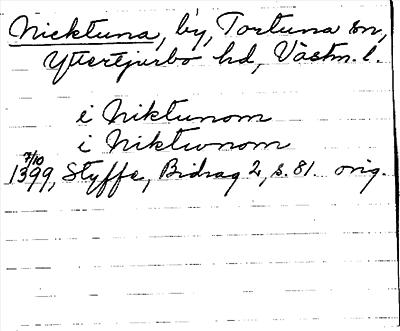 Nicktuna, by, Tortuna sn,
Yttertjurbo hd, Västm. l.
i Niktunom
i Niktwnom
7/10
1399, Styffe, Bidrag 2, s. 81 orig.